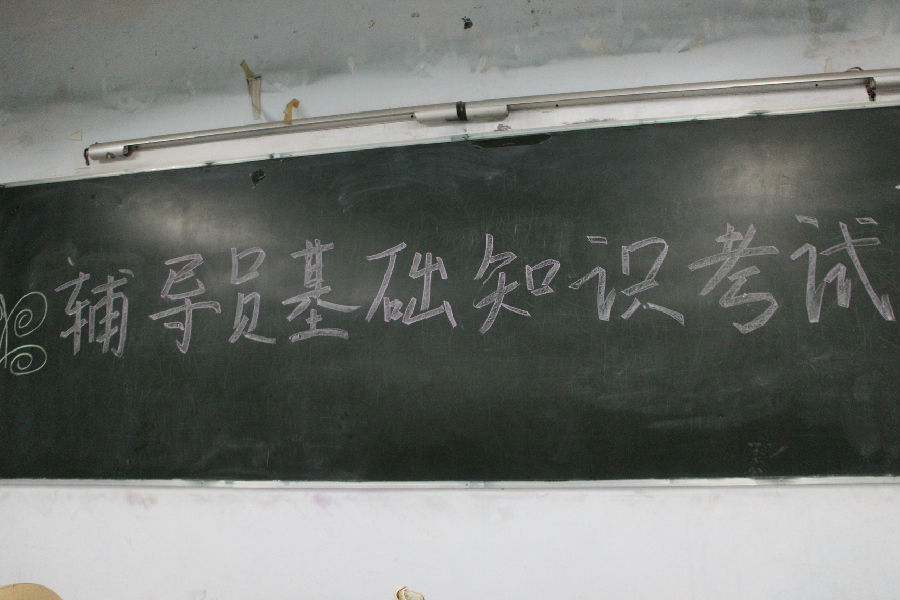 辅导员基础知识考试